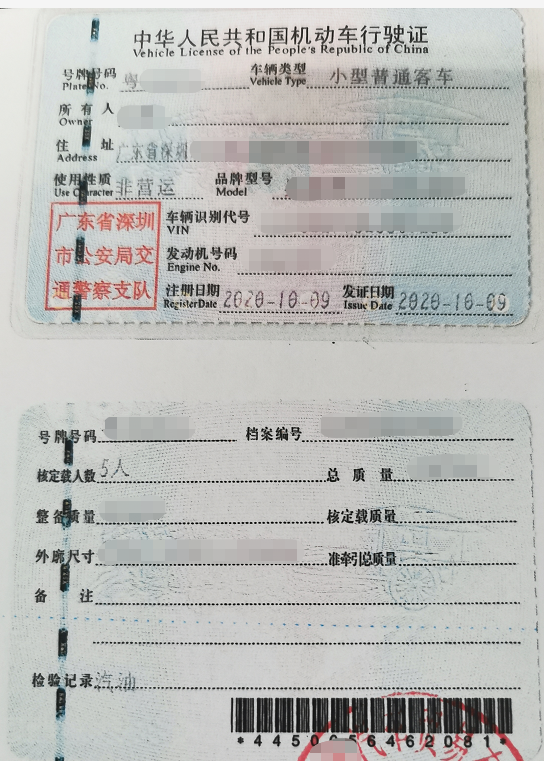 中华人民共和国机动车行驶证
Vehicle License of the People's Republic of China
号牌号码 粤 车辆类型 小型普通客车
Plate No. Vehicle Type
所有人
Owner
住址 广东省深圳
Address
使用性质 非营运 品牌型号
Use Character Model
广东省深圳
市公安局交
通警察支队
车辆识别代号
VIN
发动机号码
Engine No.
注册日期 2020-10-09 发证日期 2020-10-09
Register Date Issue Date
号牌号码 档案编号
核定载人数 5人 总质量
整备质量 核定载质量
外廓尺寸 准牵引总质量
备注
检验记录 汽油